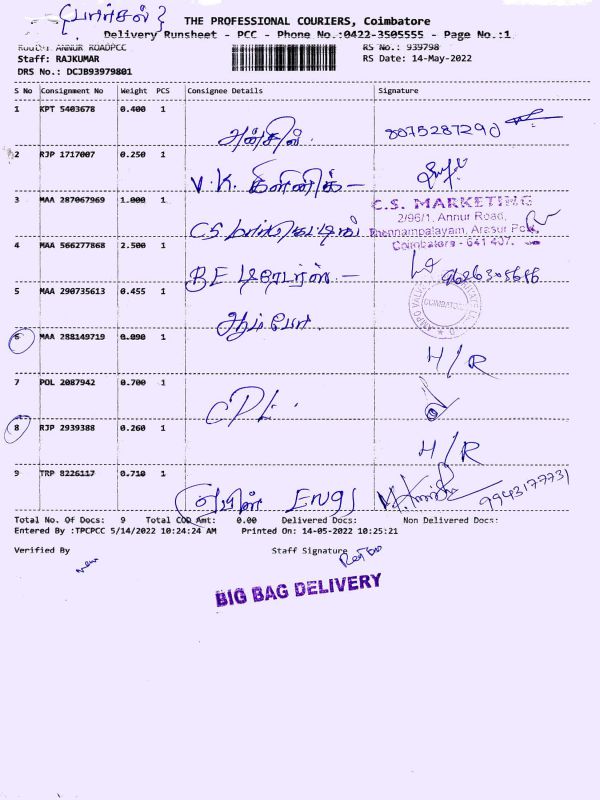 {பார்சல்}
THE PROFESSIONAL COURIERS, Coimbatore
Delivery Runsheet - PCC - Phone No.:0422-3505555 - Page No.:1
Route: ANNUR ROADPCC RS No.: 939798
Staff: RAJKUMAR RS Date: 14-May-2022
DRS No.: DCJB93979801
S No Consignment No Weight PCS Consignee Details Signature
1 KPT 5403678 0.400 1
8075287290
2 RJP 1717007 0.250 1
V.K. கிளினிக் —
3 MAA 287067969 1.000 1 C.S. MARKETING
2/96/1, Annur Road,
C.S. மார்கெட்டிங் Thennampalayam, Arasur Post,
4 MAA 566277868 2.500 1 Coimbatore - 641 407.
B.E டிரேடர்ஸ் — 9626305656
5 MAA 290735613 0.455 1 COIMBATORE
ஆம்போ.
6 MAA 288149719 0.090 1
H/R
7 POL 2087942 0.700 1
CPL.
8 RJP 2939388 0.260 1
H/R
9 TRP 8226117 0.710 1
Engg 9943177731
Total No. Of Docs: 9 Total COD Amt: 0.00 Delivered Docs: Non Delivered Docs:
Entered By :TPCPCC 5/14/2022 10:24:24 AM Printed On: 14-05-2022 10:25:21
Verified By Staff Signature
BIG BAG DELIVERY